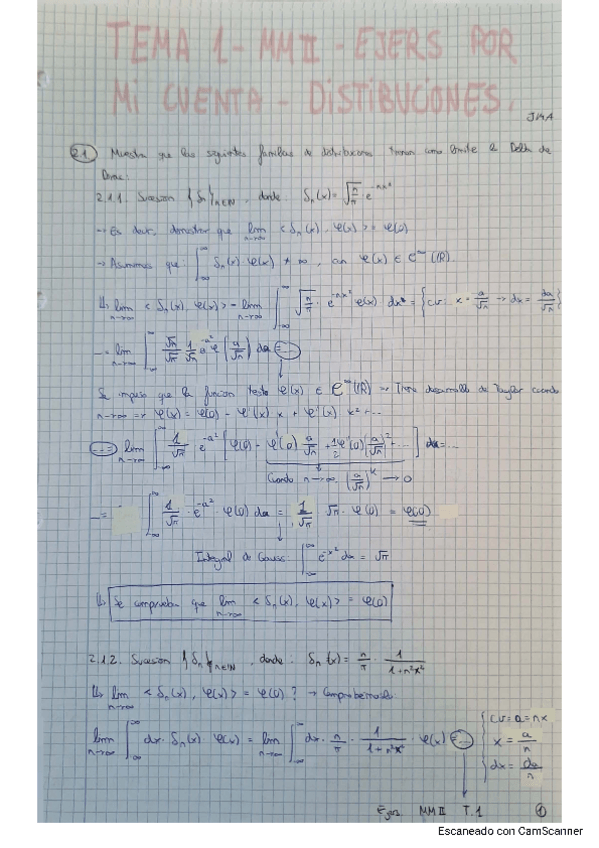 TEMA 1 - MMII - EJERS POR
MI CUENTA - DISTIBUCIONES.
JMA
2.1 Muestra que las siguientes familias de distribuciones tienen como límite la Delta de
Dirac:
2.1.1. Sucesion {δn}n∈N, donde δn(x) = √(n/π) e^(-nx²)
→ Es decir, demostrar que lim n→∞ <δn(x), φ(x)> = φ(0)
→ Asumimos que: ∫_{-∞}^{∞} δn(x) φ(x) ≠ ∞, con φ(x) ∈ C^∞(ℝ).
↳ lim n→∞ <δn(x), φ(x)> = lim n→∞ ∫_{-∞}^{∞} √(n/π) · e^(-nx²) φ(x) dx = {CV: x = a/√n → dx = da/√n}
... = lim n→∞ ∫_{-∞}^{∞} √n/√π 1/√n e^(-a²) φ(a/√n) da = ...
Se impuso que la funcion teste φ(x) ∈ C^∞(ℝ) → Tiene desarrollo de Taylor cuando
n→∞ ⇒ φ(x) = φ(0) - φ'(x) x + φ''(x) x² + ...
... = lim n→∞ ∫_{-∞}^{∞} 1/√π e^(-a²) [φ(0) - φ'(0) a/√n + 1/2 φ''(0) (a/√n)² + ...] da = ...
Cuando n→∞, (a/√n)^k → 0
... = ∫_{-∞}^{∞} 1/√π · e^(-a²) · φ(0) da = 1/√π · √π · φ(0) = φ(0)
Integral de Gauss: ∫_{-∞}^{∞} e^(-x²) da = √π
↳ Se comprueba que lim n→∞ <δn(x), φ(x)> = φ(0)
2.1.2. Sucesion {δn}n∈N, donde: δn(x) = n/π · 1/(1+n²x²)
↳ lim n→∞ <δn(x), φ(x)> = φ(0)? → Comprobemoslo:
lim n→∞ ∫_{-∞}^{∞} dx · δn(x) φ(x) = lim n→∞ ∫_{-∞}^{∞} dx · n/π · 1/(1+n²x²) · φ(x) = ...
{CV = a = nx
x = a/n
dx = da/n
Ejers MMII T.1 1
Escaneado con CamScanner